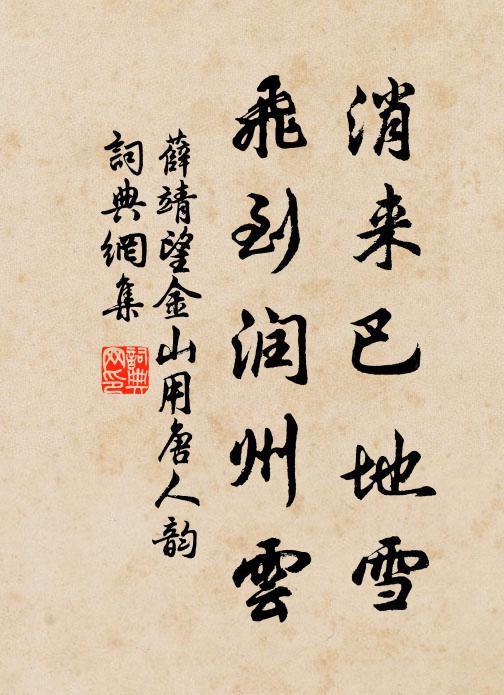 消来巴地雪
飛到润州雲
薛靖望金山用唐人韵
詞典網集
詞典网印